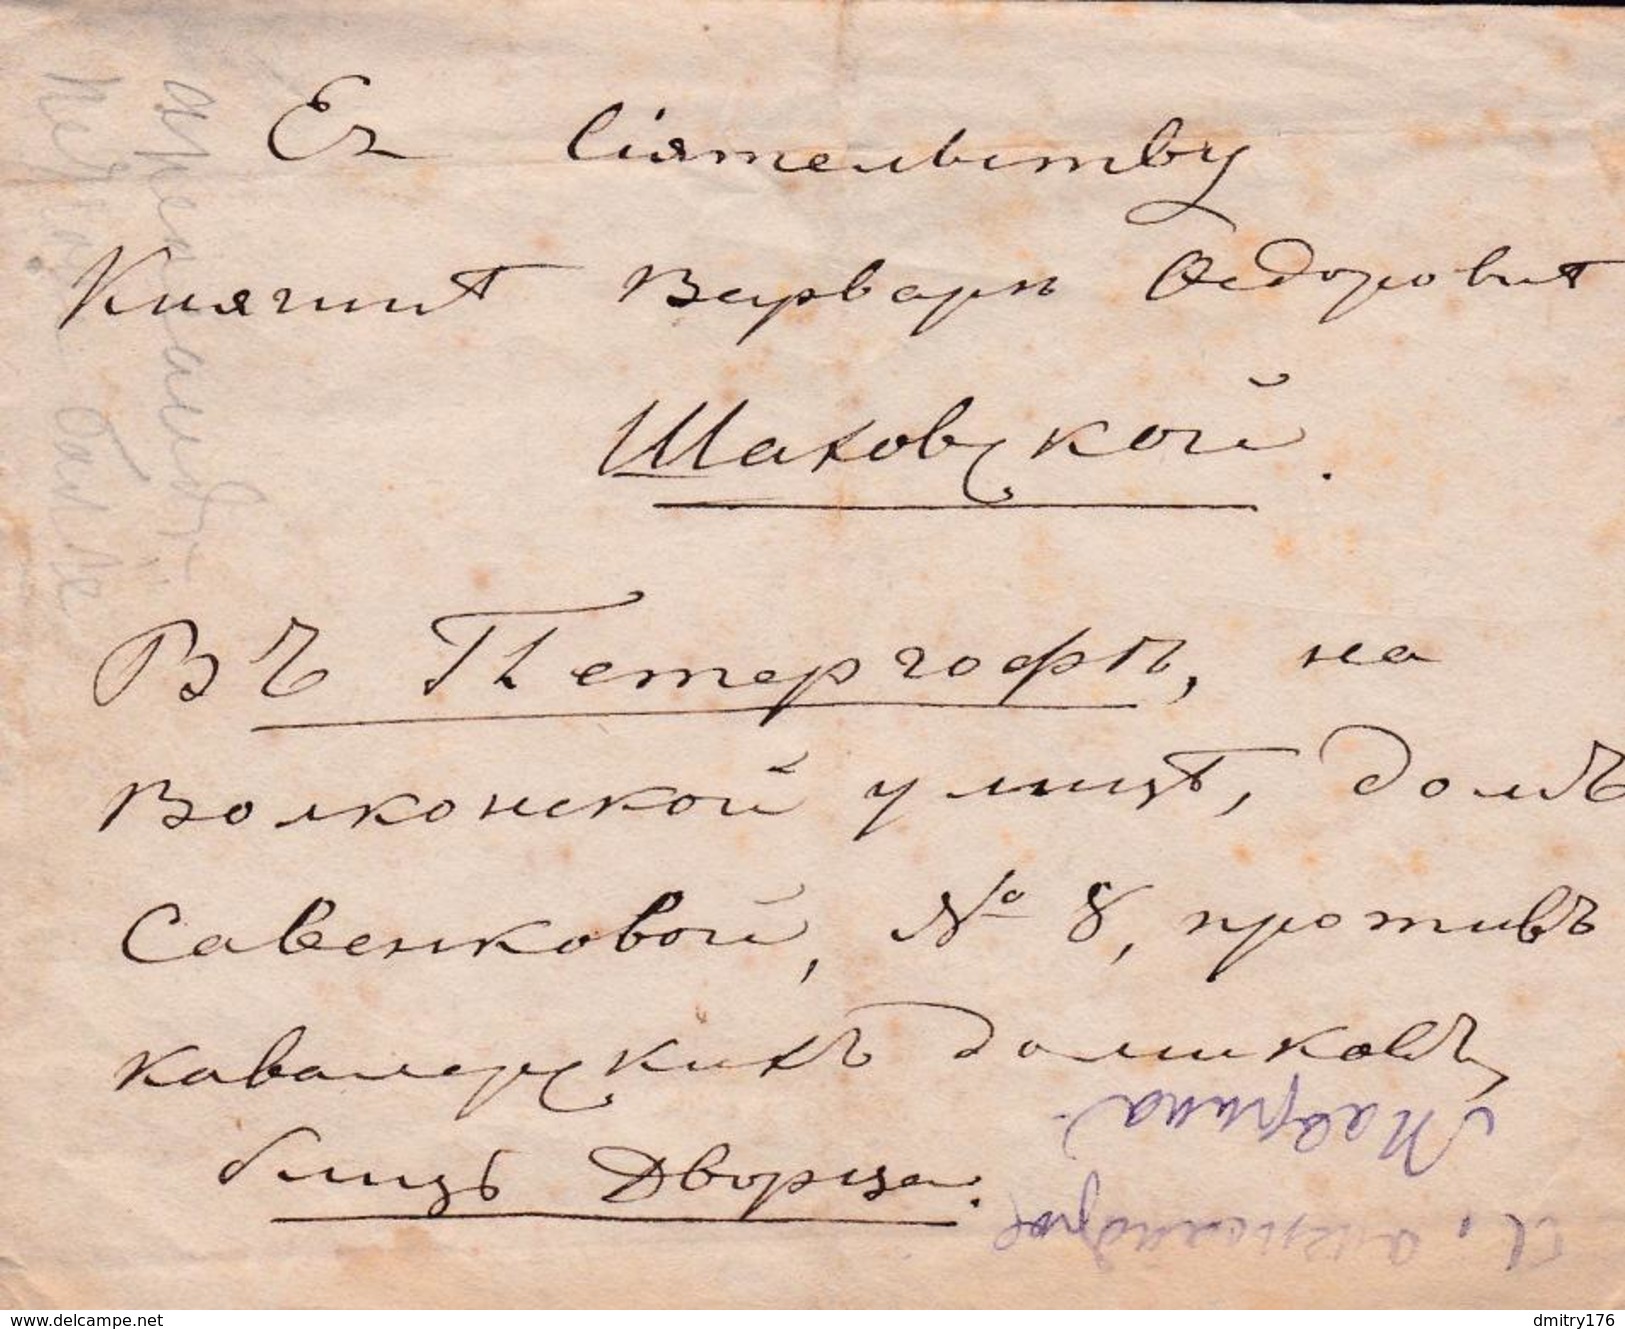 Ея Сіятельству
Княгинѣ Варварѣ Ѳедоровнѣ
Шаховской.
Въ Петергофѣ, на
Волконской улицѣ, домъ
Савенковой, № 8, противъ
кавалерскихъ домиковъ,
близъ Дворца.
Маврина
delcampe.net
dmitry176